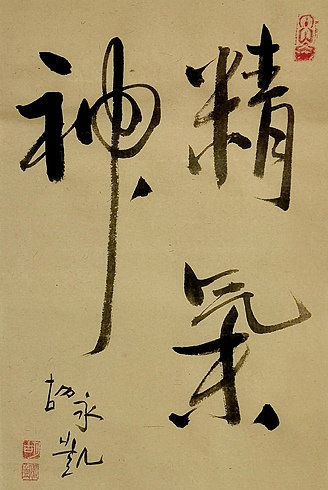 精氣
神
胡永凱